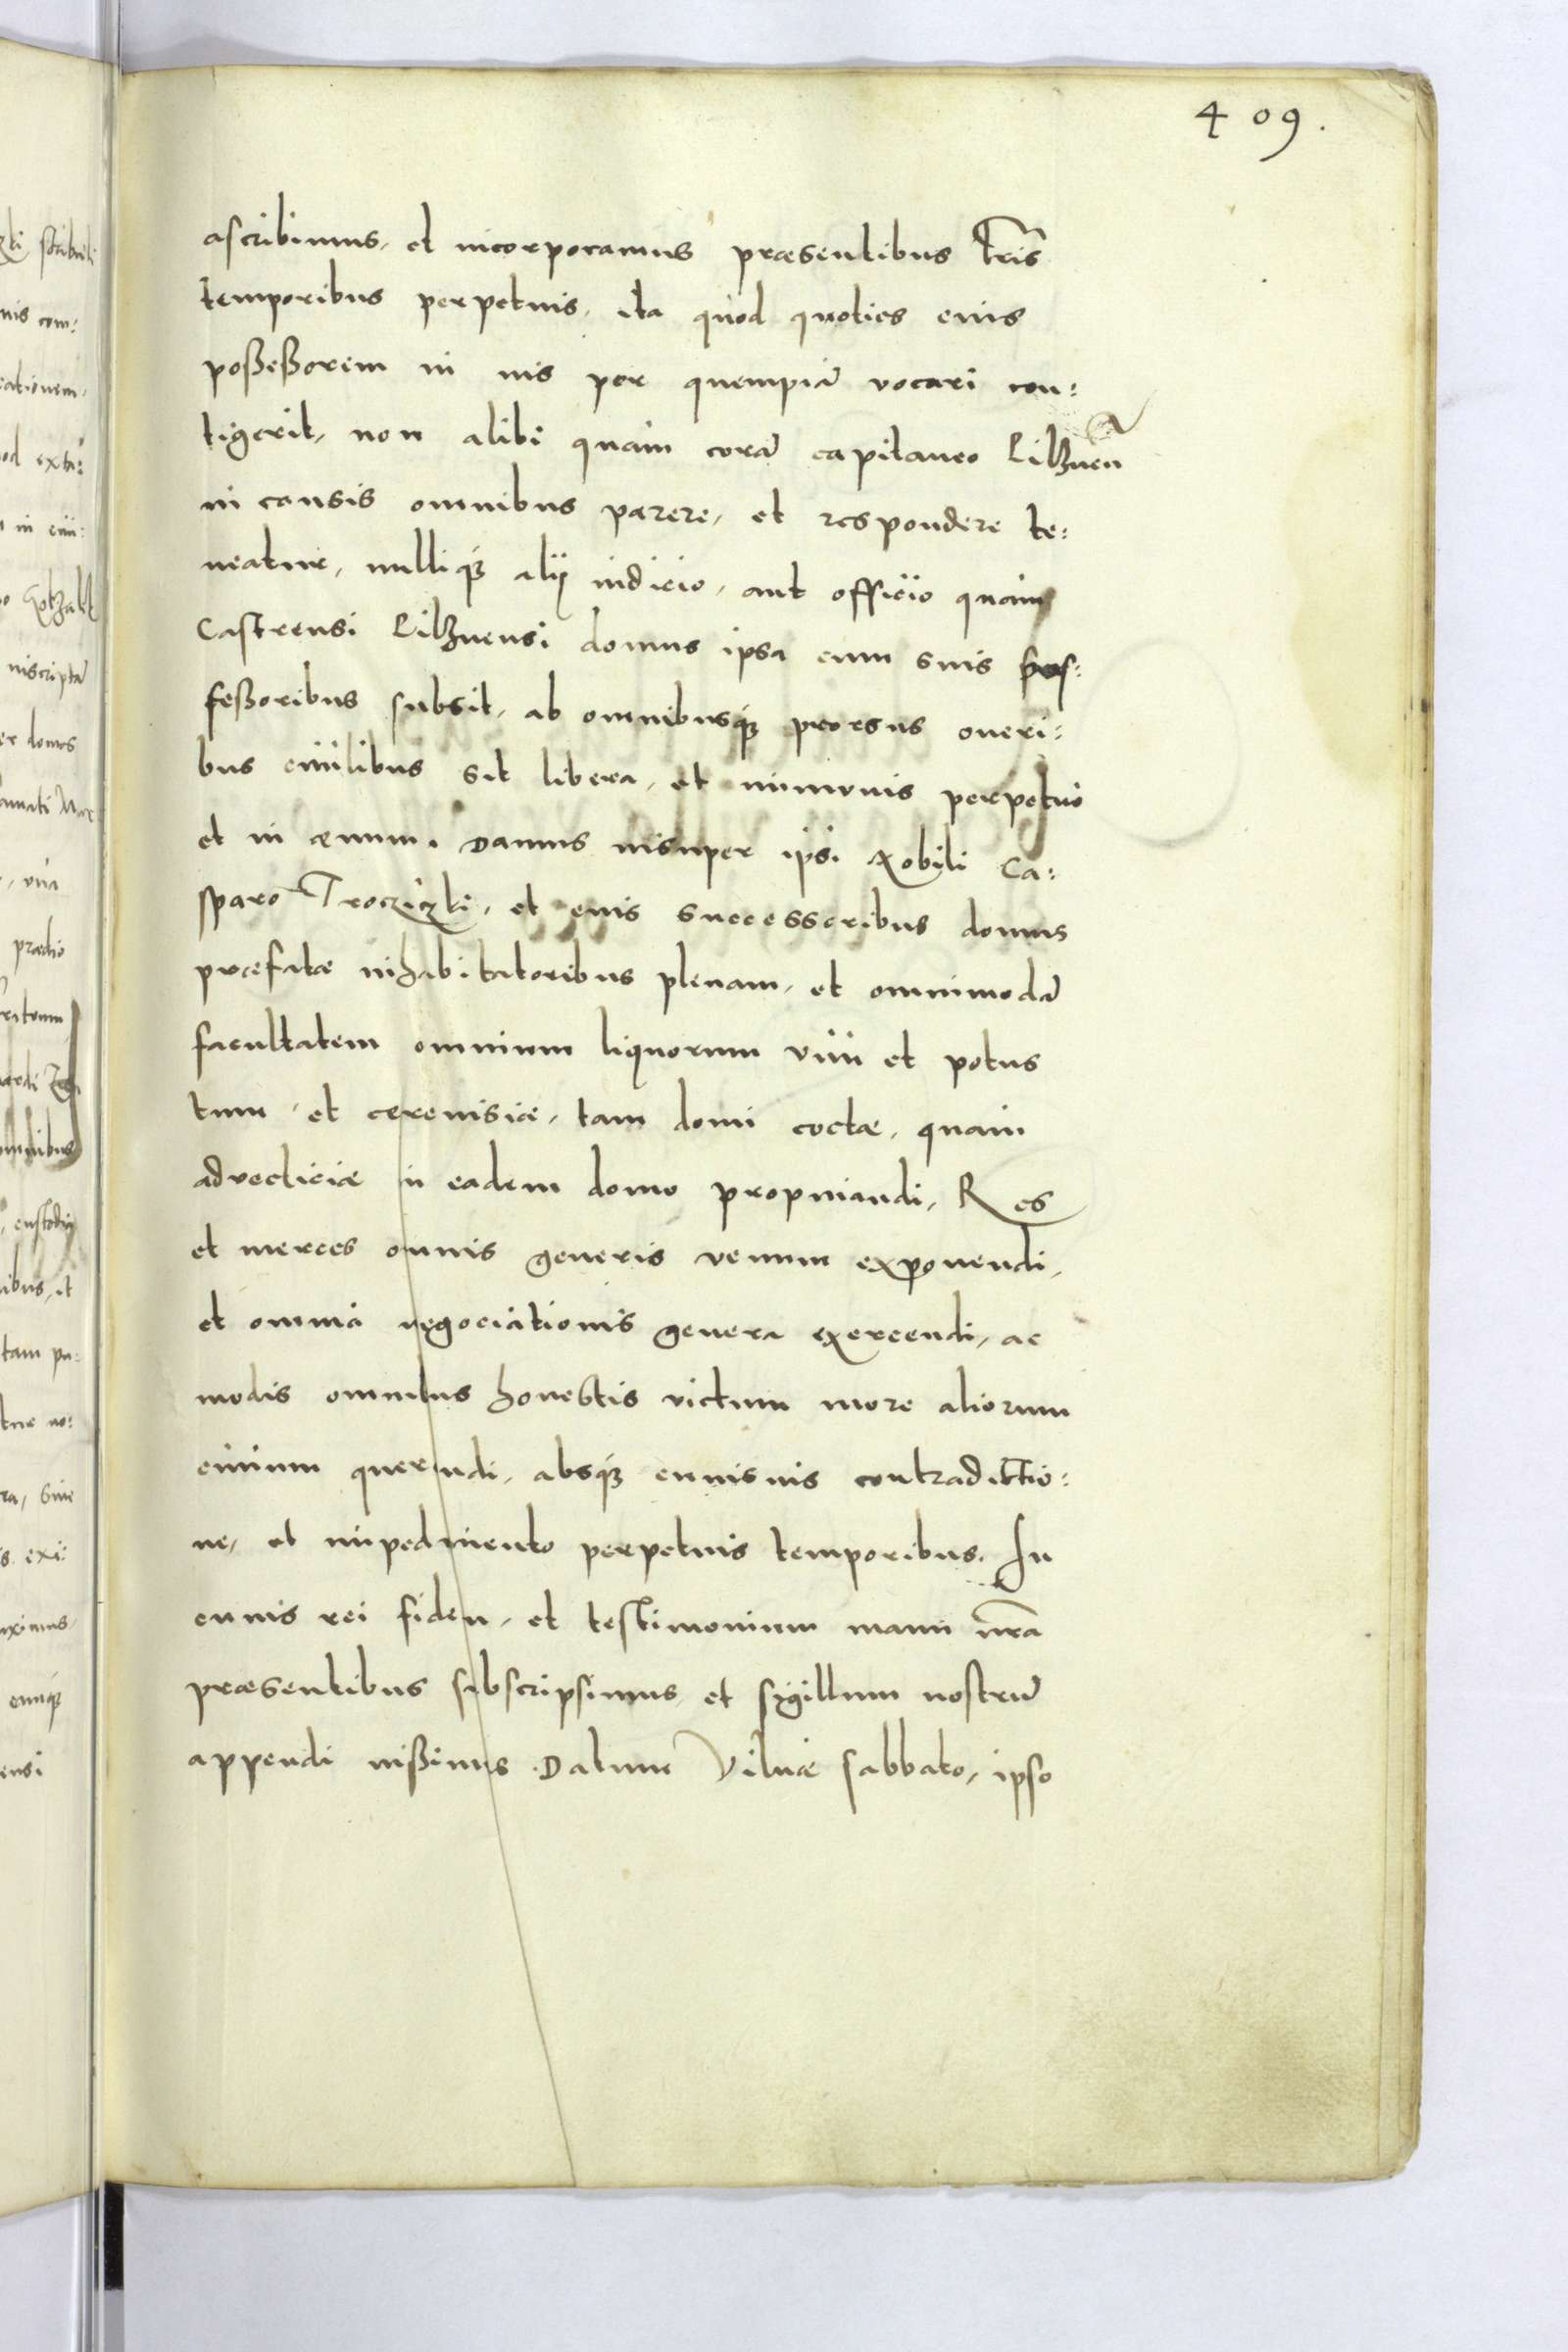 409.
ascribimus, et incorporamus præsentibus l̃ris
temporibus perpetuis, ita quod quoties eius
poßeßorem in ius per quempiã vocari con:
tigerit, non alibi quàm corã capitaneo Pilznen̄
in causis omnibus parere, et respondere te:
neatur, nulliq3 alij iudicio, aut officio quàm
Castrensi Pilznensi domus ipsa cum suis pos:
seßoribus subsit, ab omnibusq3 prorsus oneri:
bus ciuilibus sit libera, et immunis perpetuò
et in æuum. Damus insuper ipsi Nobili Ca:
sparo Trocziczki, et eius successoribus domus
præfatæ inhabitatoribus plenam, et omnimodã
facultatem omnium liquorum vini et potus
tum, et cereuisiæ, tam domi coctæ, quàm
advecticiæ in eadem domo propinandi, Res
et merces omnis generis venum exponendi,
et omnia negociationis genera exercendi, ac
modis omnibus honestis victum more aliorum
ciuium querendi, absq3 cuiusuis contradictio:
ne, et impedimento perpetuis temporibus. In
cuius rei fidem, et testimonium manu nr̃a
præsentibus subscripsimus, et sigillum nostrũ
appendi iußimus. Datum Vilnæ sabbato, ipso